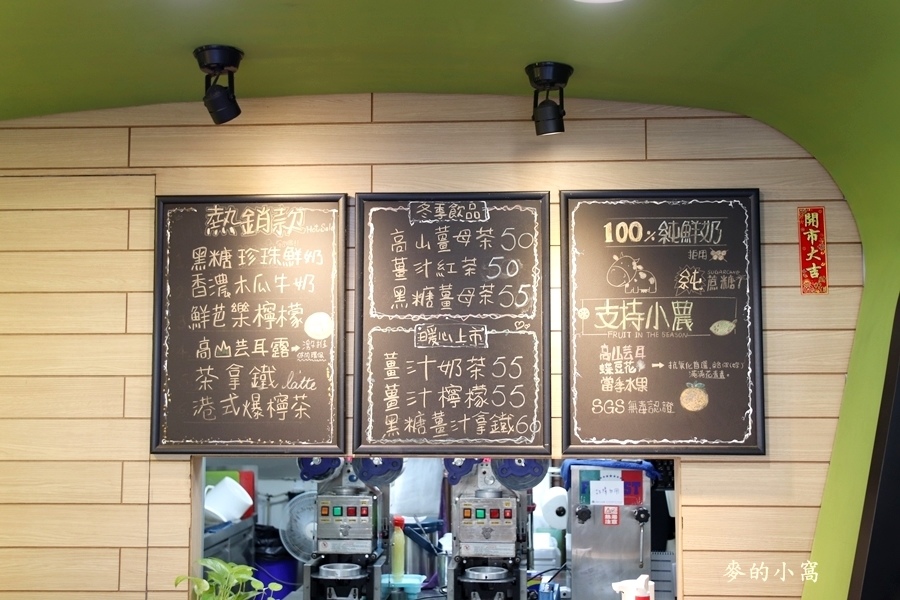 熱銷款 Hot Sale
黑糖珍珠鮮奶
香濃木瓜牛奶
鮮芭樂檸檬
高山芸耳露→
茶拿鐵 latte
港式爆檸茶
冬季飲品
高山薑母茶50
薑汁紅茶50
黑糖薑母茶55
暖心上市
薑汁奶茶55
薑汁檸檬55
黑糖薑汁拿鐵60
100%純鮮奶
拒用
SUGARCANE
純蔗糖
支持小農
FRUIT IN THE SEASON
高山芸耳
蝶豆花
當季水果
SGS無毒認證
開市大吉
麥的小窩